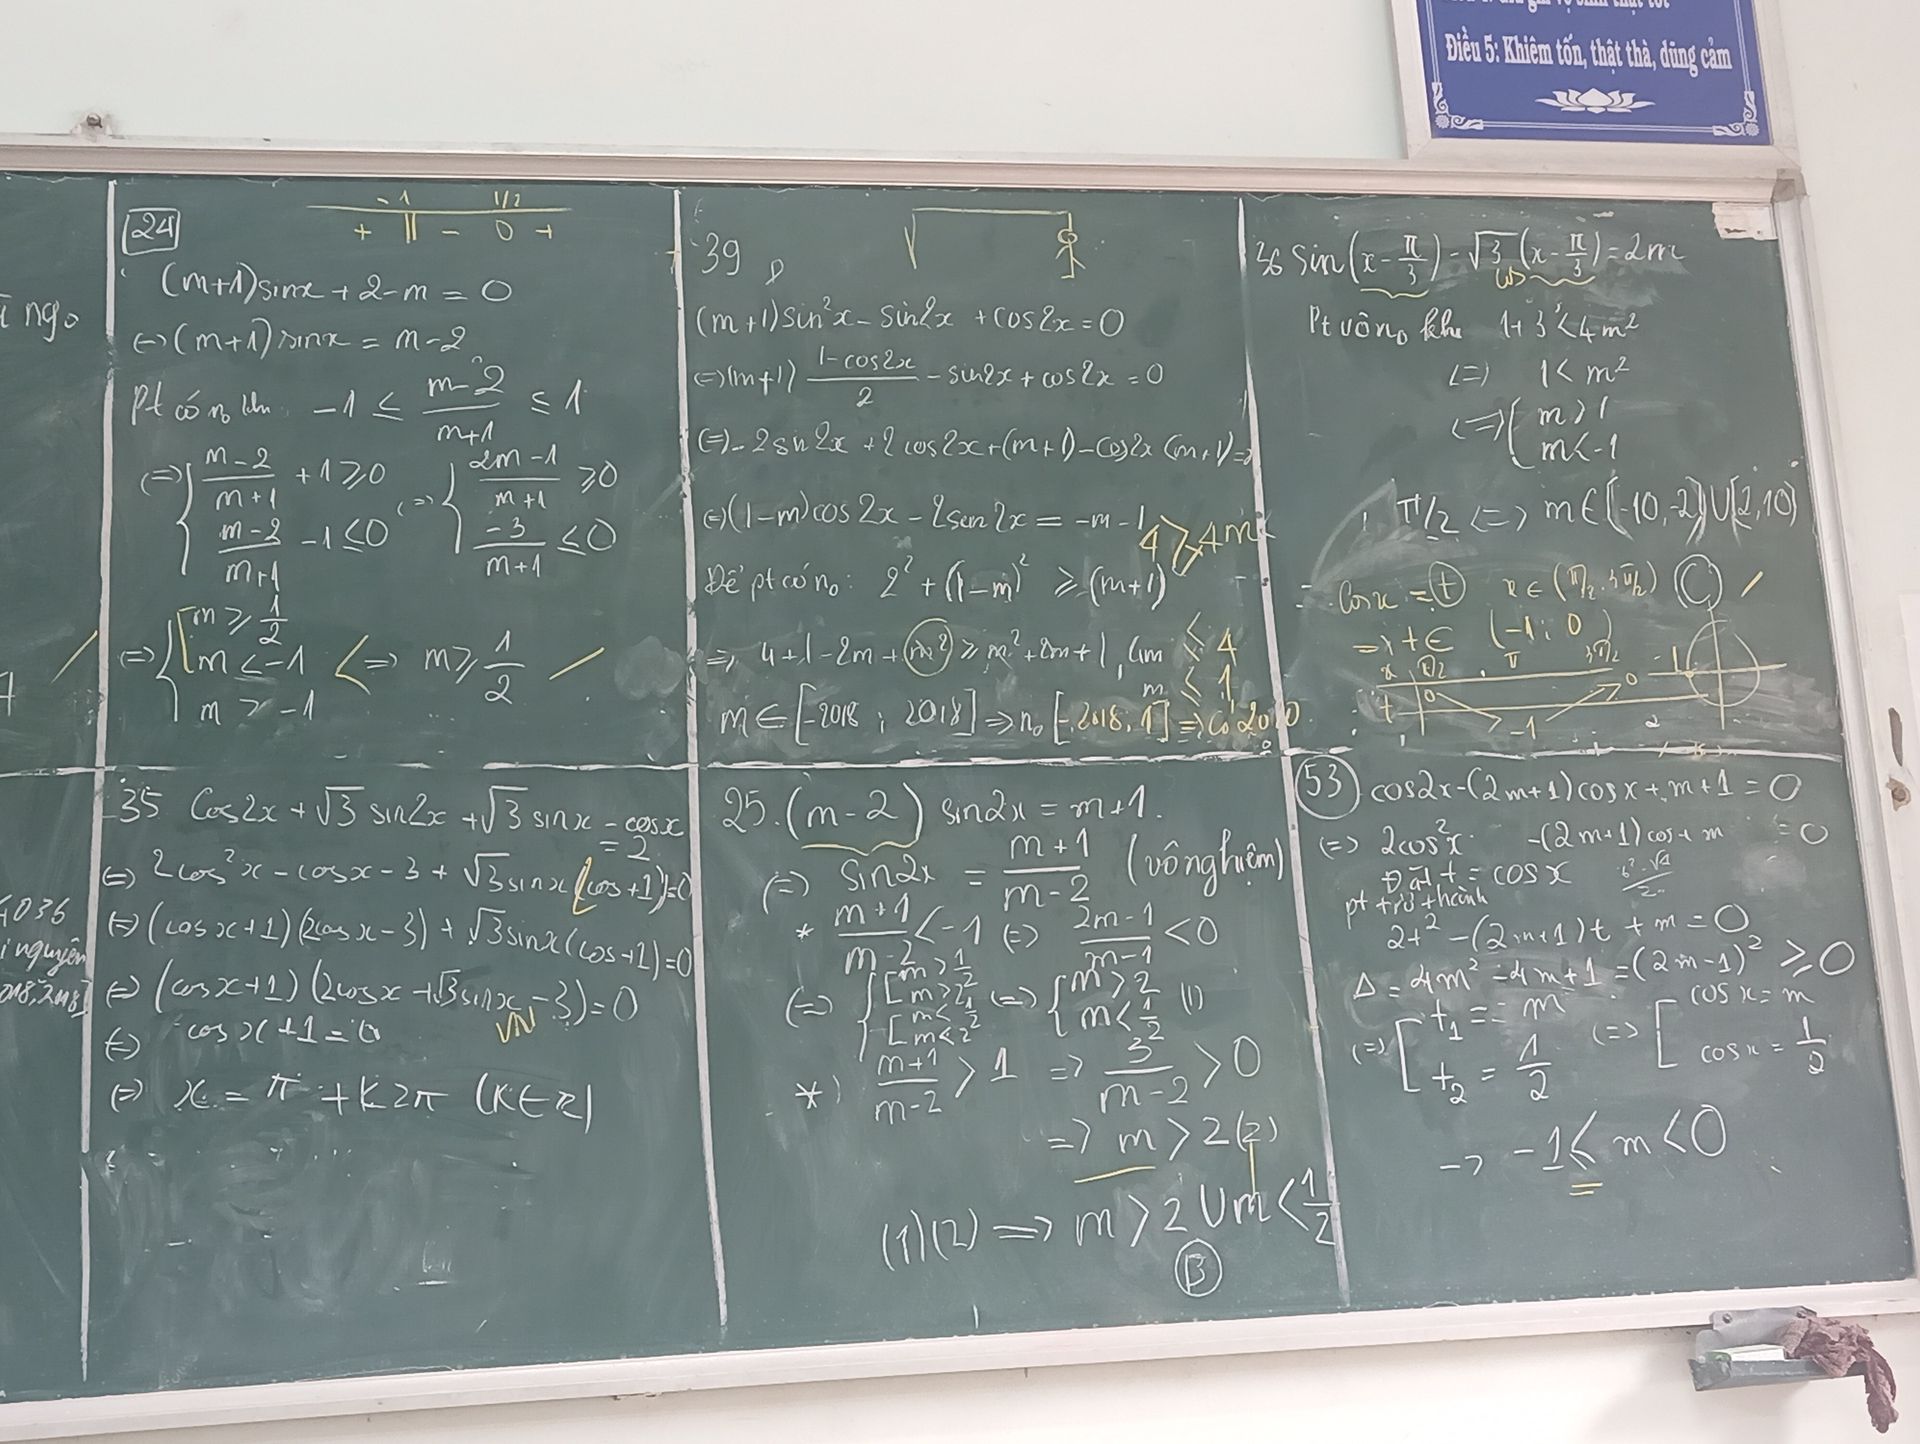 Điều 5: Khiêm tốn, thật thà, dũng cảm
ngo
4036
nguyên
24
-1 1/2
+ || - 0 +
(m+1)sinx + 2-m = 0
<=> (m+1)sinx = m-2
Pt có no khi -1 ≤ (m-2)/(m+1) ≤ 1
<=> { (m-2)/(m+1) + 1 ≥ 0 <=> { (2m-1)/(m+1) ≥ 0
(m-2)/(m+1) - 1 ≤ 0 (-3)/(m+1) ≤ 0
<=> { [ m ≥ 1/2
m < -1 <=> m ≥ 1/2
m > -1
39
(m+1)sin²x - sin2x + cos2x = 0
<=> (m+1) (1-cos2x)/2 - sin2x + cos2x = 0
<=> -2sin2x + 2cos2x + (m+1) - cos2x (m+1) =
<=> (1-m)cos2x - 2sin2x = -m-1
4 ≥ 4m
Để pt có no: 2² + (1-m)² ≥ (m+1)²
=> 4+1-2m+m² ≥ m²+2m+1, 4m ≤ 4
m ≤ 1
m ∈ [-2018; 2018] => no [-2018, 1] => có 2020
36 sin(x - π/3) - √3 cos (x - π/3) = 2m
Pt vô no khi 1+3 < 4m²
<=> 1 < m²
<=> [ m > 1
m < -1
<=> m ∈ [-10,-2] U [2,10]
Cosx = t x ∈ (π/2, 3π/2) C
=> t ∈ (-1; 0)
x π/2 π 3π/2 -1
t 0 -1 0
35 Cos2x + √3 sin2x + √3 sinx - cosx
= 2
<=> 2cos²x - cosx - 3 + √3 sinx (cos+1) = 0
<=> (cosx+1)(2cosx-3) + √3 sinx (cos+1) = 0
<=> (cosx+1)(2cosx + √3 sinx - 3) = 0
VN
<=> cosx+1 = 0
<=> x = π + k2π (k∈Z)
25. (m-2) sin2x = m+1.
<=> sin2x = (m+1)/(m-2) (vô nghiệm)
* (m+1)/(m-2) < -1 <=> (2m-1)/(m-1) < 0
<=> { [ m > 1/2
m > 2 <=> { m > 2
[ m < 1/2 m < 1/2 (1)
m < 2
*) (m+1)/(m-2) > 1 => 3/(m-2) > 0
=> m > 2 (2)
(1)(2) => m > 2 U m < 1/2
B
53 cos2x-(2m+1)cosx+m+1 = 0
<=> 2cos²x -(2m+1)cos+m = 0
Đặt t = cosx
pt trở thành
2t² - (2m+1)t + m = 0
Δ = 4m² - 4m+1 = (2m-1)² ≥ 0
<=> [ t₁ = m <=> [ cosx = m
t₂ = 1/2 cosx = 1/2
-> -1 ≤ m < 0